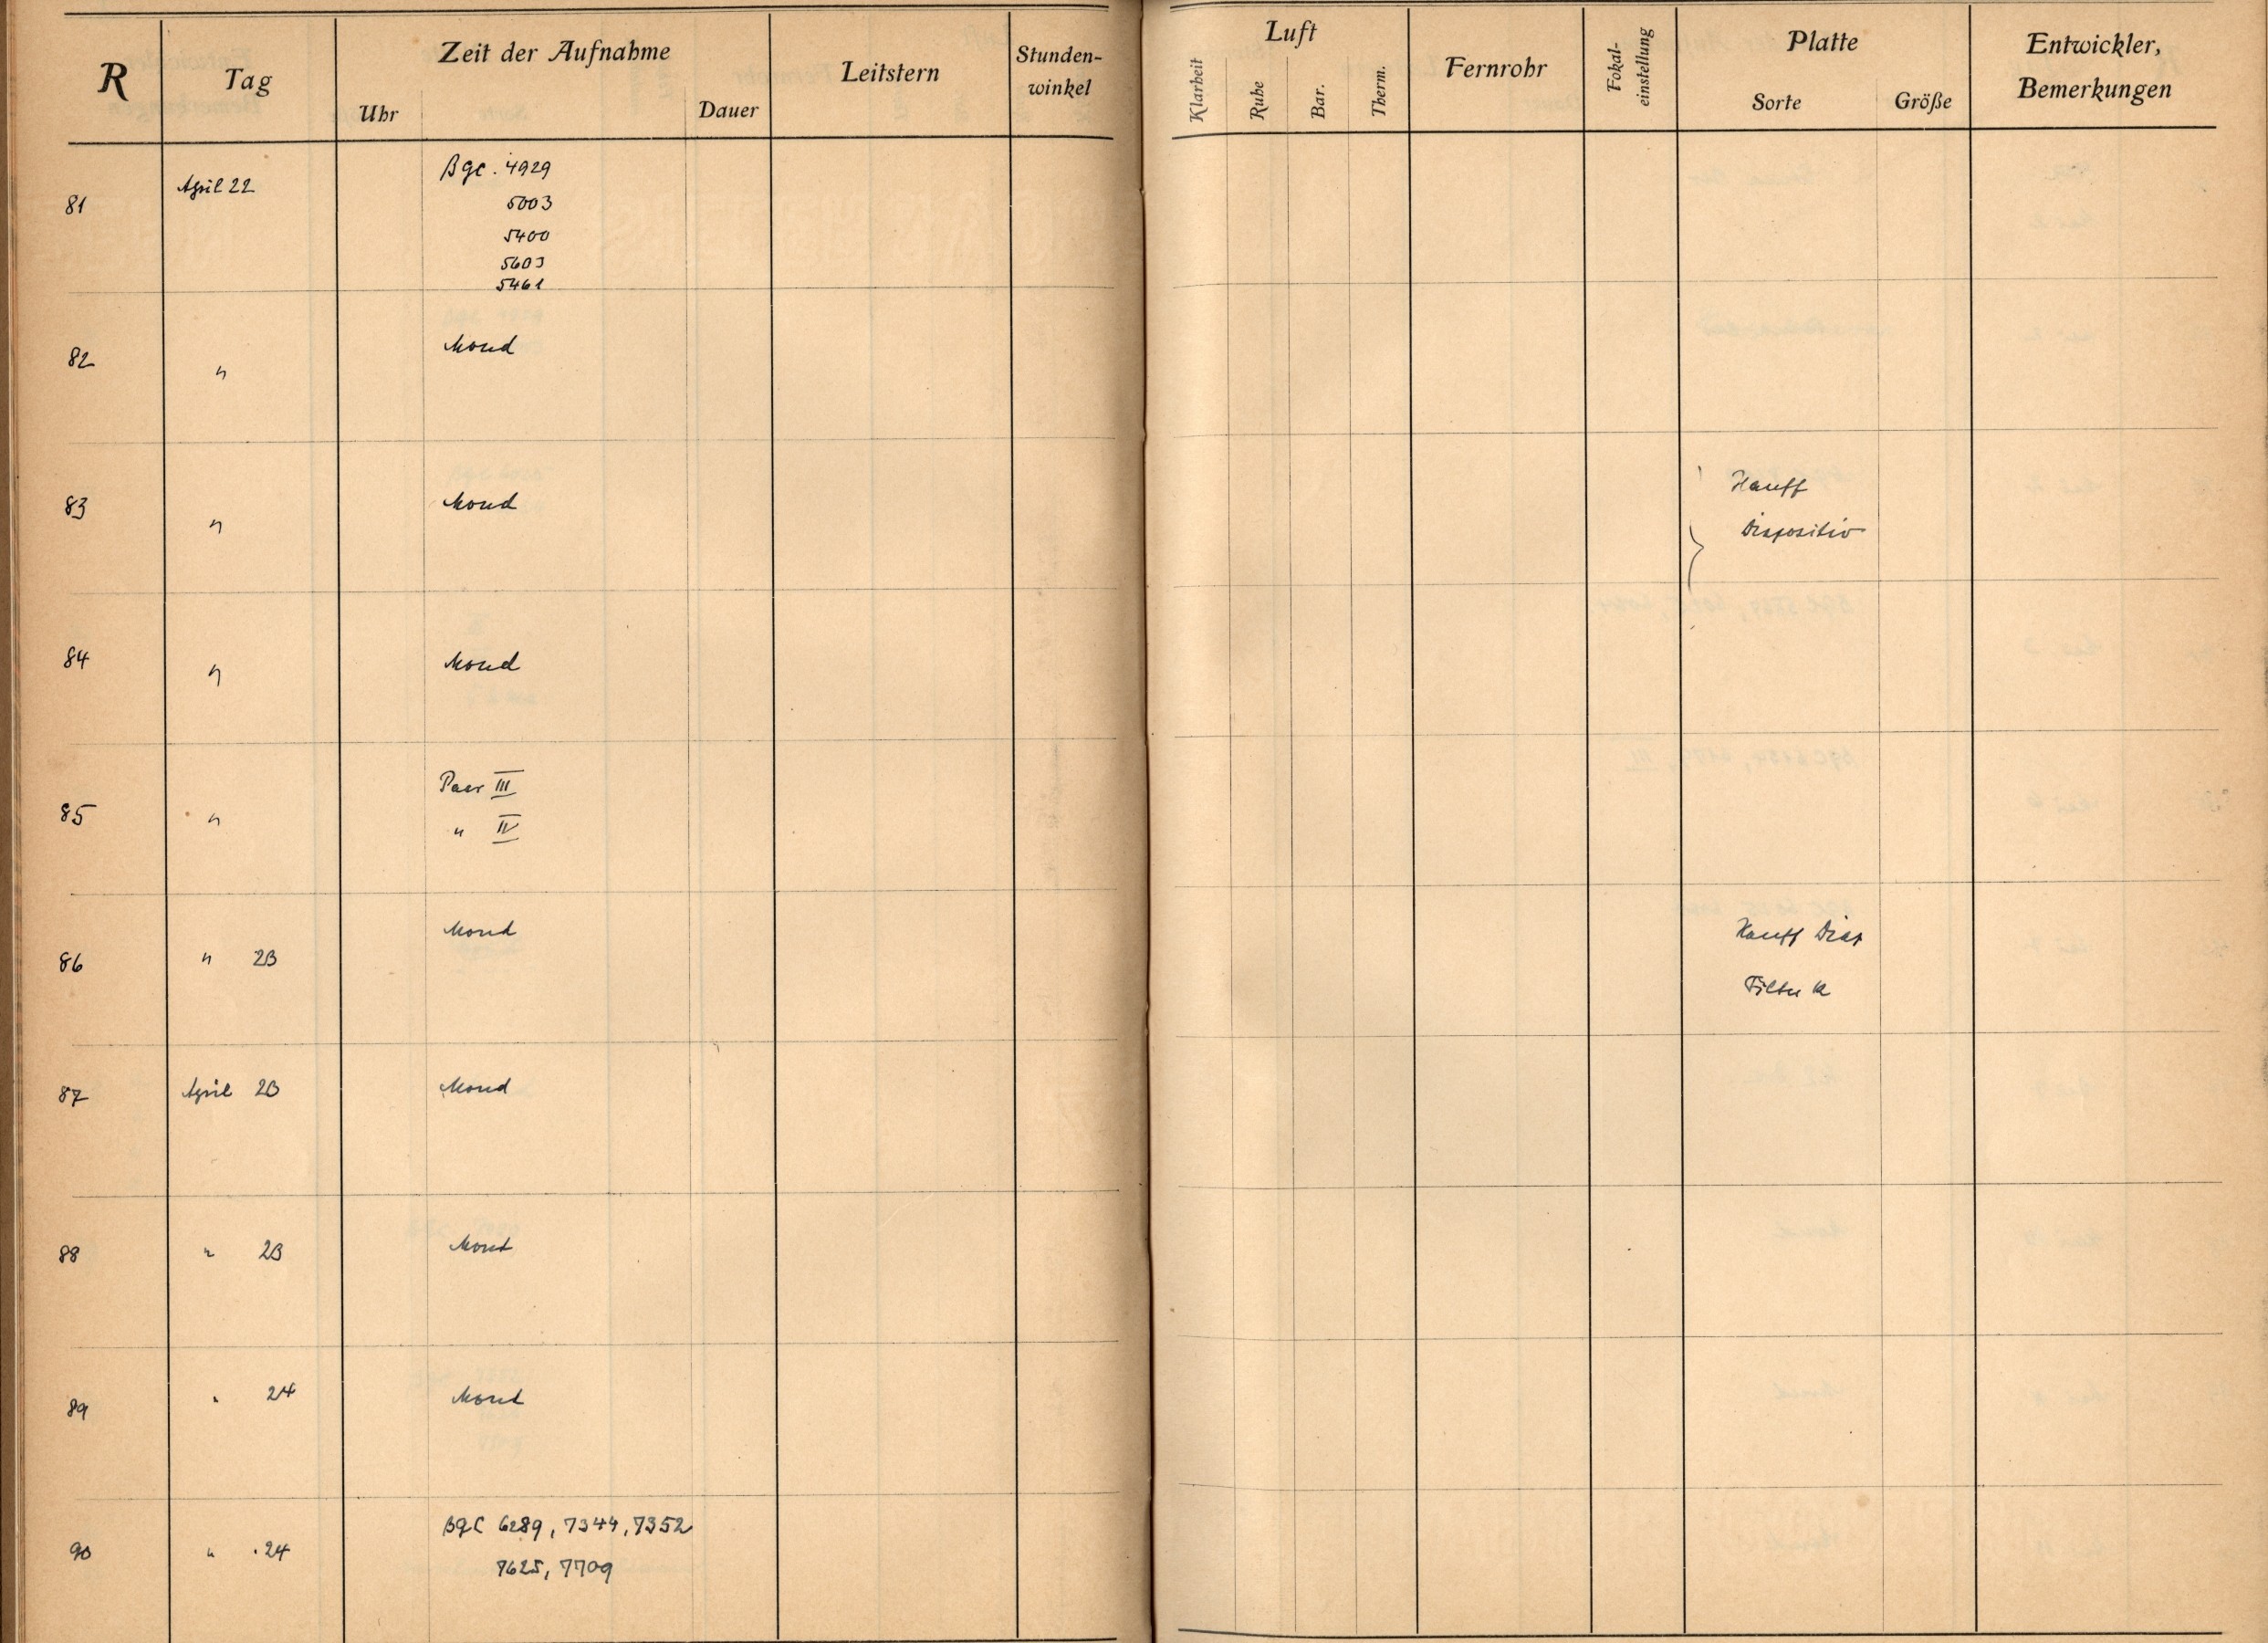 R Tag Zeit der Aufnahme Leitstern Stunden-
winkel Luft Fernrohr Fokal-
einstellung Platte Entwickler,
Bemerkungen
Uhr Dauer Klarheit Ruhe Bar. Therm. Sorte Größe
81 April 22 Bgc. 4929
5003
5400
5603
5461
82 " Mond
83 " Mond Hauff
Diapositiv
84 " Mond
85 " Paar III
" IV
86 " 23 Mond Hauff Diap
Filter
87 April 23 Mond
88 " 23 Mond
89 " 24 Mond
90 " 24 BGC 6289, 7344, 7352
7625, 7709